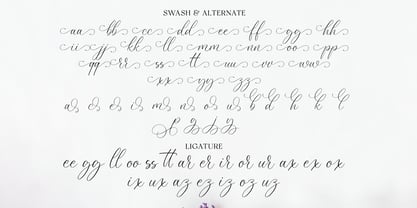 SWASH & ALTERNATE
aa bb cc dd ee ff gg hh
ii jj kk ll mm nn oo pp
qq rr ss tt uu vv ww
xx yy zz
as es is ms ns os us b d h k l
LIGATURE
ee gg ll oo ss tt ar er ir or ur ax ex ox
ix ux az ez iz oz uz